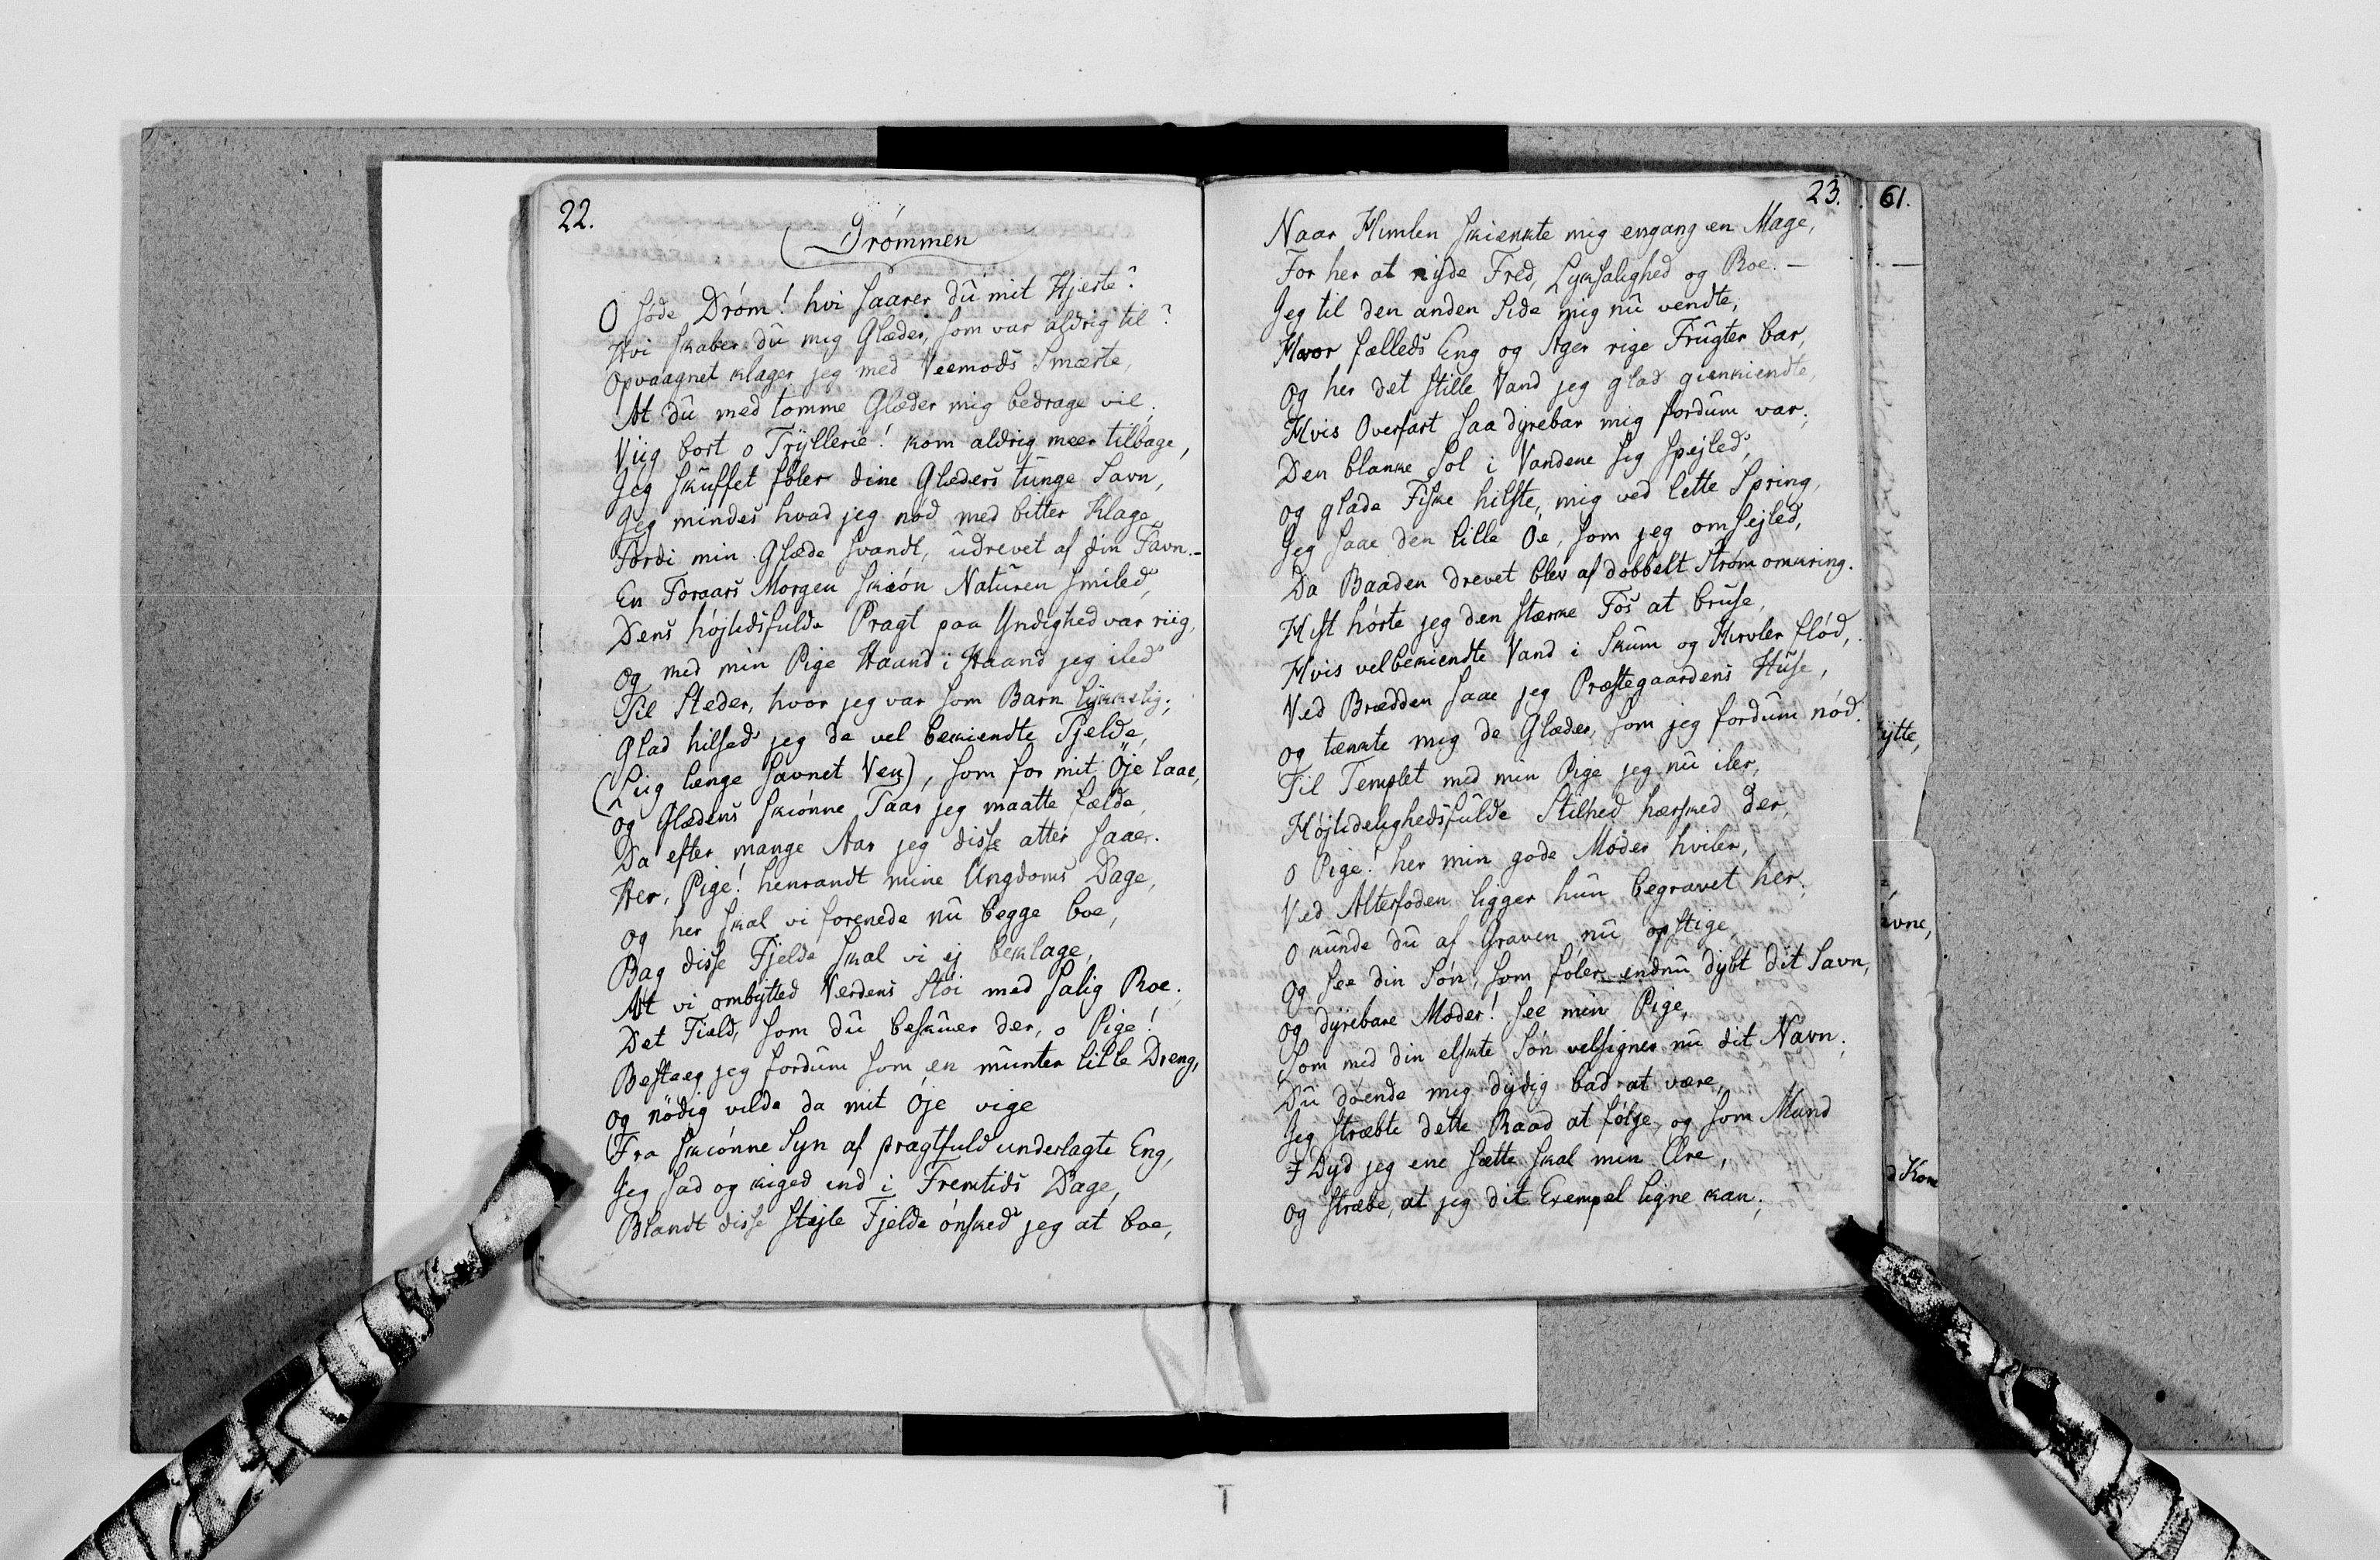 22.
Drømmen
O søde Drøm! hvi saarer du mit Hjerte?
Hvi skaber du mig Glæder, som var aldrig til?
Opvaagnet klager jeg med Veemods Smerte,
At du med tomme Glæder mig bedrage vil.
Viig bort o Tryllerie! kom aldrig meer tilbage,
Jeg skuffet føler dine Glæders tunge Savn,
Jeg mindes hvad jeg nød med bitter Klage
Fordi min Glæde svandt, udrevet af din Favn.-
En Foraars Morgen skiøn Naturen smiled,
Dens højtidsfulde Pragt paa Yndighed var riig,
og med min Pige Haand i Haand jeg iled
Til Steder, hvor jeg var som Barn lykkelig;
Glad hilsed jeg de vel bekiendte Fjelde,
(Liig længe savnet Ven), som for mit Øje laae,
og Glædens skiønne Taar jeg maatte fælde,
Da efter mange Aar jeg disse atter saae.
Her, Pige! henrandt mine Ungdoms Dage,
og her skal vi forenede nu begge boe,
Bag disse Fjelde skal vi ej beklage,
At vi ombytted Verdens Støi med salig Roe.
Det Field, som du beskuer der, o Pige!
Besteeg jeg fordum som en munter lille Dreng,
og nødig vilde da mit Øje vige
Fra skiønne Syn af pragtfuld underlagte Eng,
Jeg sad og kiged ind i Fremtids Dage,
Blandt disse stejle Fjelde ønsked jeg at boe,
23.
Naar Himlen skienkte mig engang en Mage,
For her at nyde Fred, Lyksalighed og Roe. —
Jeg til den anden Side mig nu vendte,
Hvor fælleds Eng og Ager rige Frugter bar,
og her det stille Vand jeg glad gienkiendte,
Hvis Overfart saa dyrebar mig fordum var;
Den blanke Sol i Vandene sig spejled,
og glade Fiske hilste, mig ved lette Spring,
Jeg saae den lille Øe, som jeg omsejled,
Da Baaden drevet blev af dobbelt Strøm omkring.
Hist hørte jeg den stærke Fos at bruse,
Hvis velbekiendte Vand i Skum og Hvirvler flød,
Ved Bredden saae jeg Præstegaardens Huse,
og tænkte mig de Glæder, som jeg fordum nød.
Til Templet med min Pige jeg nu iler,
Højtidelighedsfulde Stilhed hersked der,
o Pige! her min gode Moder hviler,
Ved Alterfoden ligger hun begravet her.
o kunde du af Graven nu opstige,
og see din Søn, som føler endnu dybt dit Savn,
og dyrebare Moder! see min Pige,
Som med din elskte Søn velsigner nu dit Navn.
Du døende mig dydig bad at være,
Jeg stræbte dette Raad at følge, og som Mand
I Dyd jeg ene sætte skal min Ære,
og stræbe, at jeg dit Exempel ligne kan;
61.
ytte,
avne,